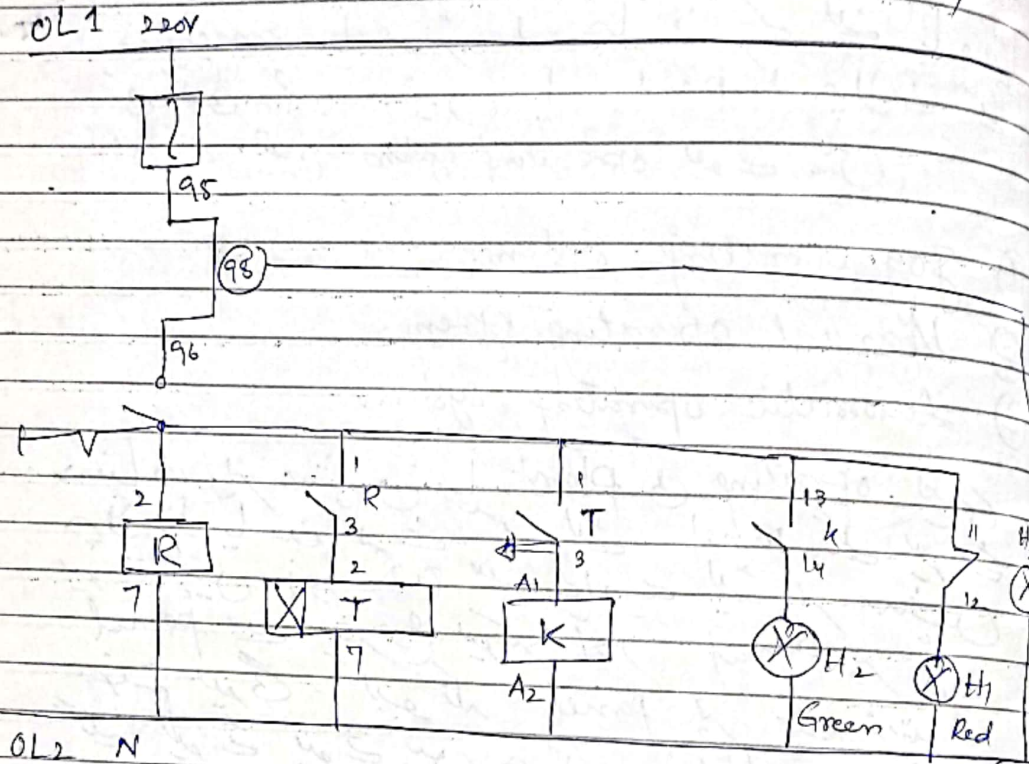 OL1 220V
95
98
96
2
R
7
1
R
3
2
T
7
1
T
3
A1
K
A2
13
K
14
H2
Green
11
12
H1
Red
H
OL2 N